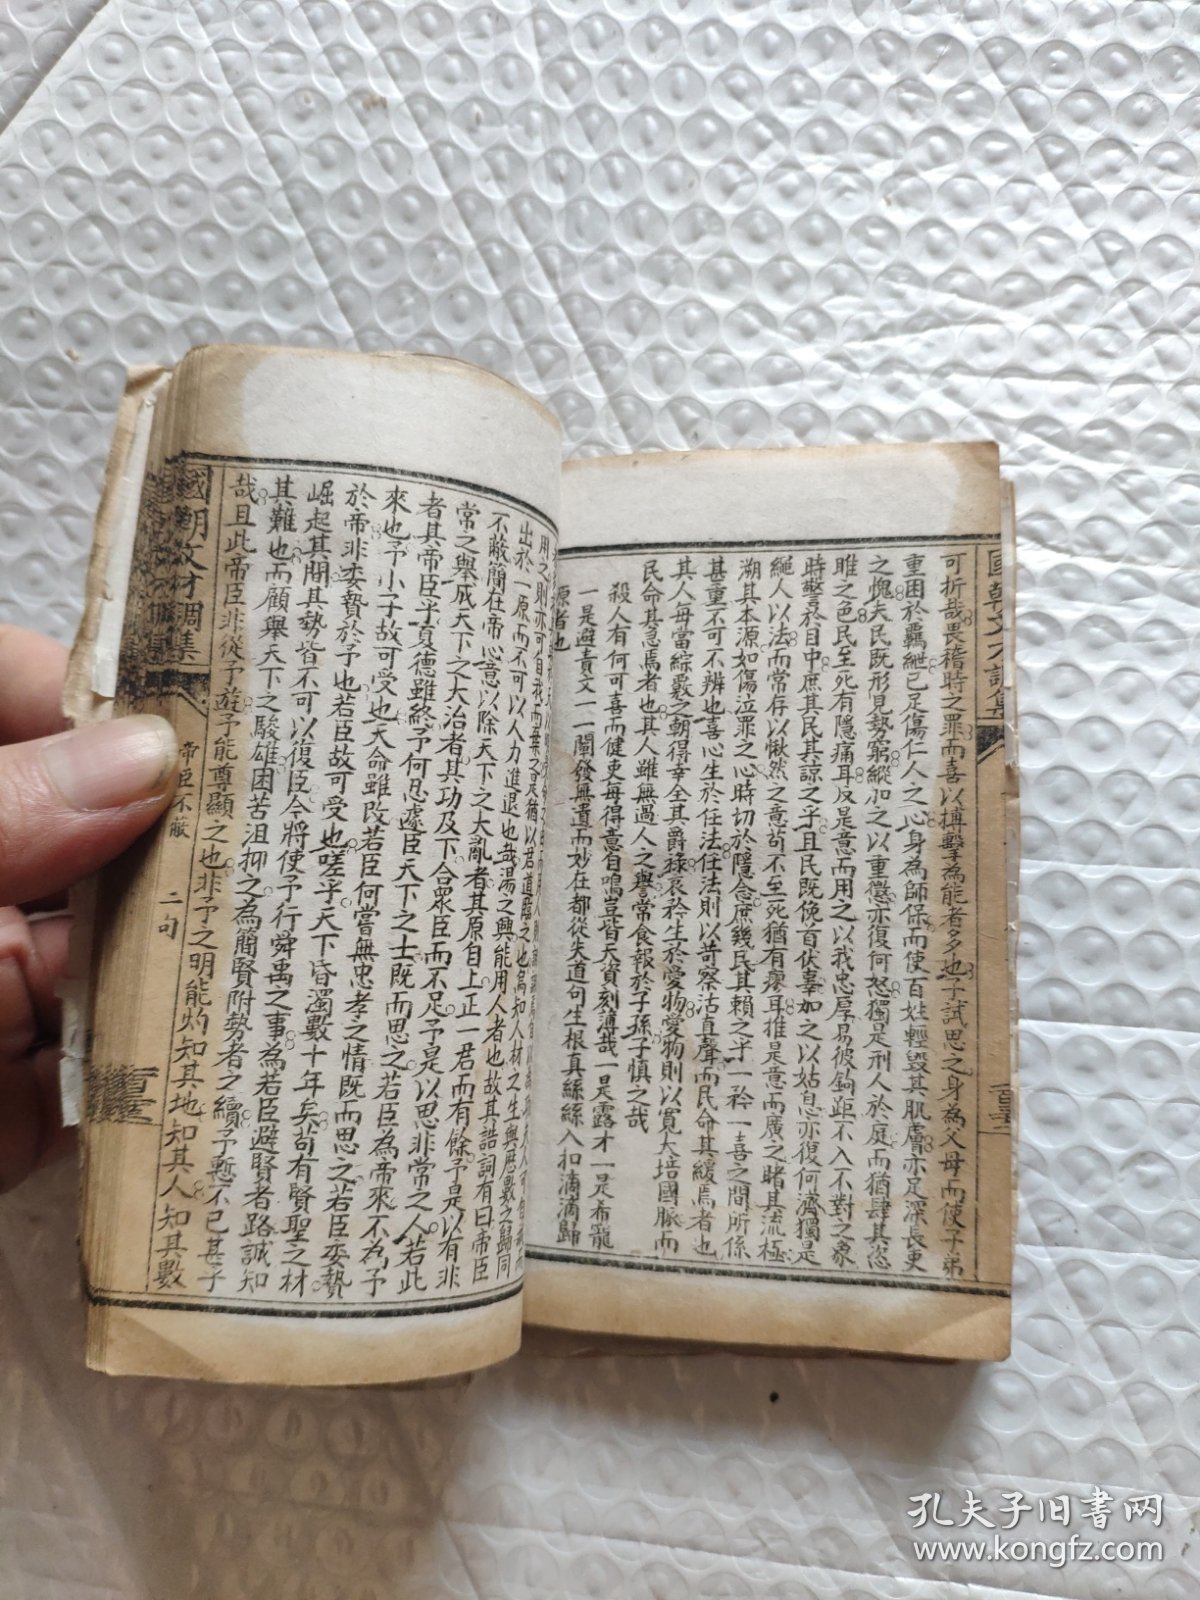 國朝文才調集
可折哉畏稽時之罪而喜以搏擊為能者多也予試思之身為父母而使子弟
重困於羈紲已足傷仁人之心身為師保而使百姓輕毀其肌膚亦足深長吏
之愧夫民既形見勢窮縱加之以重懲亦復何怒獨是刑人於庭而猶肆其恣
睢之色民至死有隱痛耳反是意而用之以我忠厚易彼鉤距不入不對之象
時警於目中庶其民其諒之乎且民既俛首伏辜加之以姑息亦復何濟獨是
繩人以法而常存以愀然之意苟不至死猶有瘳耳推是意而廣之睹其流極
溯其本源如傷泣罪之心時切於隱念庶幾民其賴之乎一矜一喜之間所係
甚重不可不辨也喜心生於任法任法則以苛察沽直聲而民命其緩焉者也
其人每當綜覈之朝得幸全其爵祿哀矜生於愛物愛物則以寬大培國脈而
民命其急焉者也其人雖無過人之譽常食報於子孫予慎之哉
殺人有何可喜而健吏每得意自鳴豈皆天資刻薄哉一是露才一是布寵
一是避責文一一闡發無遺而妙在都從失道句生根真絲絲入扣滴滴歸
源者也
出於一原而不可以人力進退也哉湯之興能用人者也故其誥詞有曰帝臣
不蔽簡在帝心意以除天下之大亂者其原自上正一君而有餘予是以有非
常之舉成天下之大治者其功及下合眾臣而不足予是以思非常之人若此
者其帝臣乎夏德雖終予何忍處臣天下之士既而思之若臣為帝來不為予
來也予小子故可受也天命雖改若臣何嘗無忠孝之情既而思之若臣委贄
於帝非委贄於予也若臣故可受也嗟乎天下昏濁數十年矣苟有賢聖之材
崛起其間其勢皆不可以復臣今將使予行舜禹之事為若臣避賢者路誠知
其難也而顧舉天下之駿雄困苦沮抑之為簡賢附勢者之續予慙不已甚乎
哉且此帝臣非從予遊予能尊顯之也非予之明能灼知其地知其人知其數
國朝文才調集
帝臣不蔽 二句